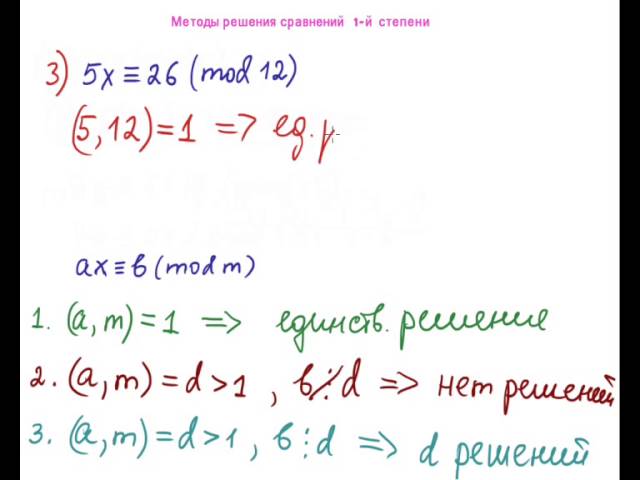 Методы решения сравнений 1-й степени
3) 5x ≡ 26 (mod 12)
(5, 12) = 1 => ед. р
ax ≡ b (mod m)
1. (a, m) = 1 => единств. решение
2. (a, m) = d > 1 , b⋮̸d => нет решений
3. (a, m) = d > 1 , b⋮d => d решений